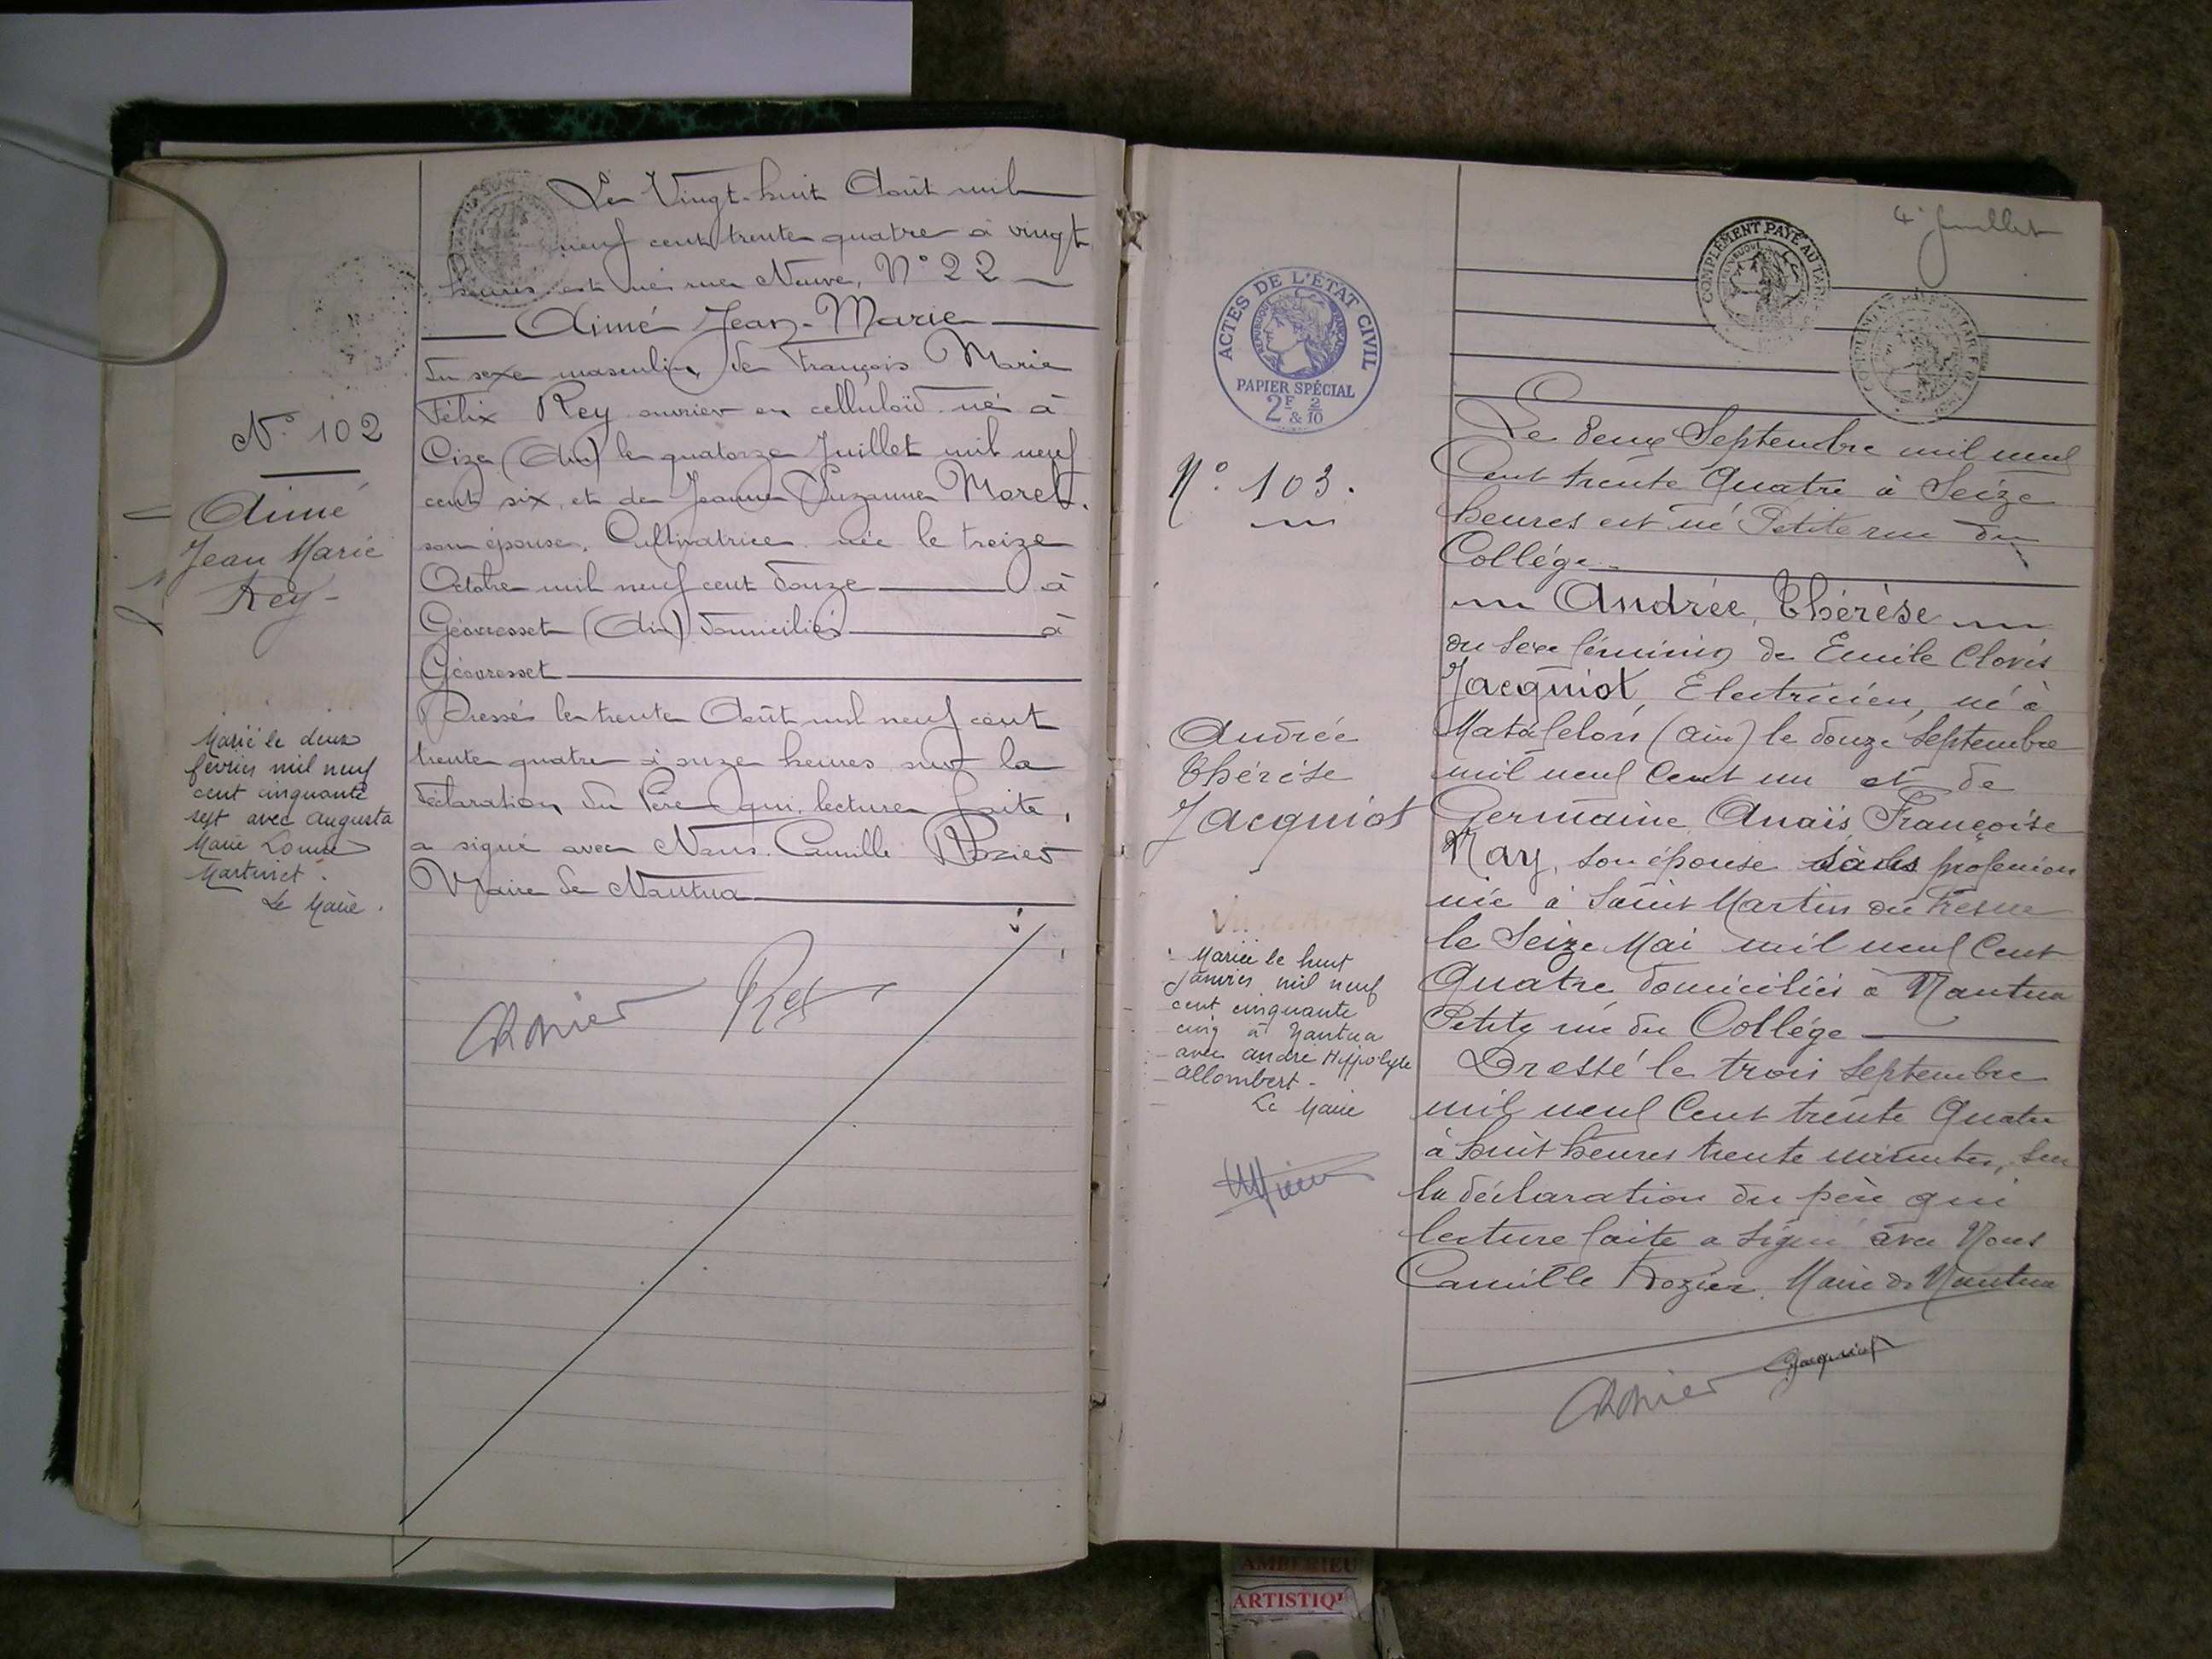 Le Vingt-huit Août mil
neuf cent trente quatre à vingt
heures est né rue Neuve, N° 22
Aimé Jean-Marie
du sexe masculin, de François Marie
Félix Rey ouvrier en celluloïd né à
Cize (Ain) le quatorze Juillet mil neuf
cent six, et de Jeanne Suzanne Moret.
son épouse, Cultivatrice née le treize
Octobre mil neuf cent douze à
Géovresset (Ain) domiciliés à
Géovresset
Dressé le trente Août mil neuf cent
trente quatre à onze heures sur la
déclaration du Père qui, lecture faite,
a signé avec Nous. Camille Rozier
Maire de Nantua
Rozier Rey
N° 102
Aimé
Jean Marie
Rey-
Marié le deux
février mil neuf
cent cinquante
sept avec Augusta
Marie Louise
Martinet.
Le Maire.
4e feuillet
COMPLÉMENT PAYÉ AU TARIF
ACTES DE L'ÉTAT CIVIL
RÉPUBLIQUE FRANÇAISE
PAPIER SPÉCIAL
2F & 2/10
N° 103.
Andrée
Thérèse
Jacquiot
Mariée le huit
janvier mil neuf
cent cinquante
cinq à Nantua
avec André Hippolyte
Allombert-
Le Maire
Le deux Septembre mil neuf
Cent trente Quatre à Seize
heures est né Petite rue du
Collége-
Andrée, Thérèse
du sexe féminin de Emile Clovis
Jacquiot, Electricien, né à
Matafelon (Ain) le douze Septembre
mil neuf Cent un et de
Germaine Anaïs Françoise
Nay, son épouse sans profession
née à Saint Martin du Fresne
le Seize Mai mil neuf Cent
Quatre domiciliés à Nantua
Petite rue du Collége
Dressé le trois Septembre
mil neuf Cent trente Quatre
à huit heures trente minutes, sur
la déclaration du père qui
lecture faite a signé avec Nous
Camille Rozier, Maire de Nantua
Rozier Jacquiot
AMBERIEU
ARTISTIQ